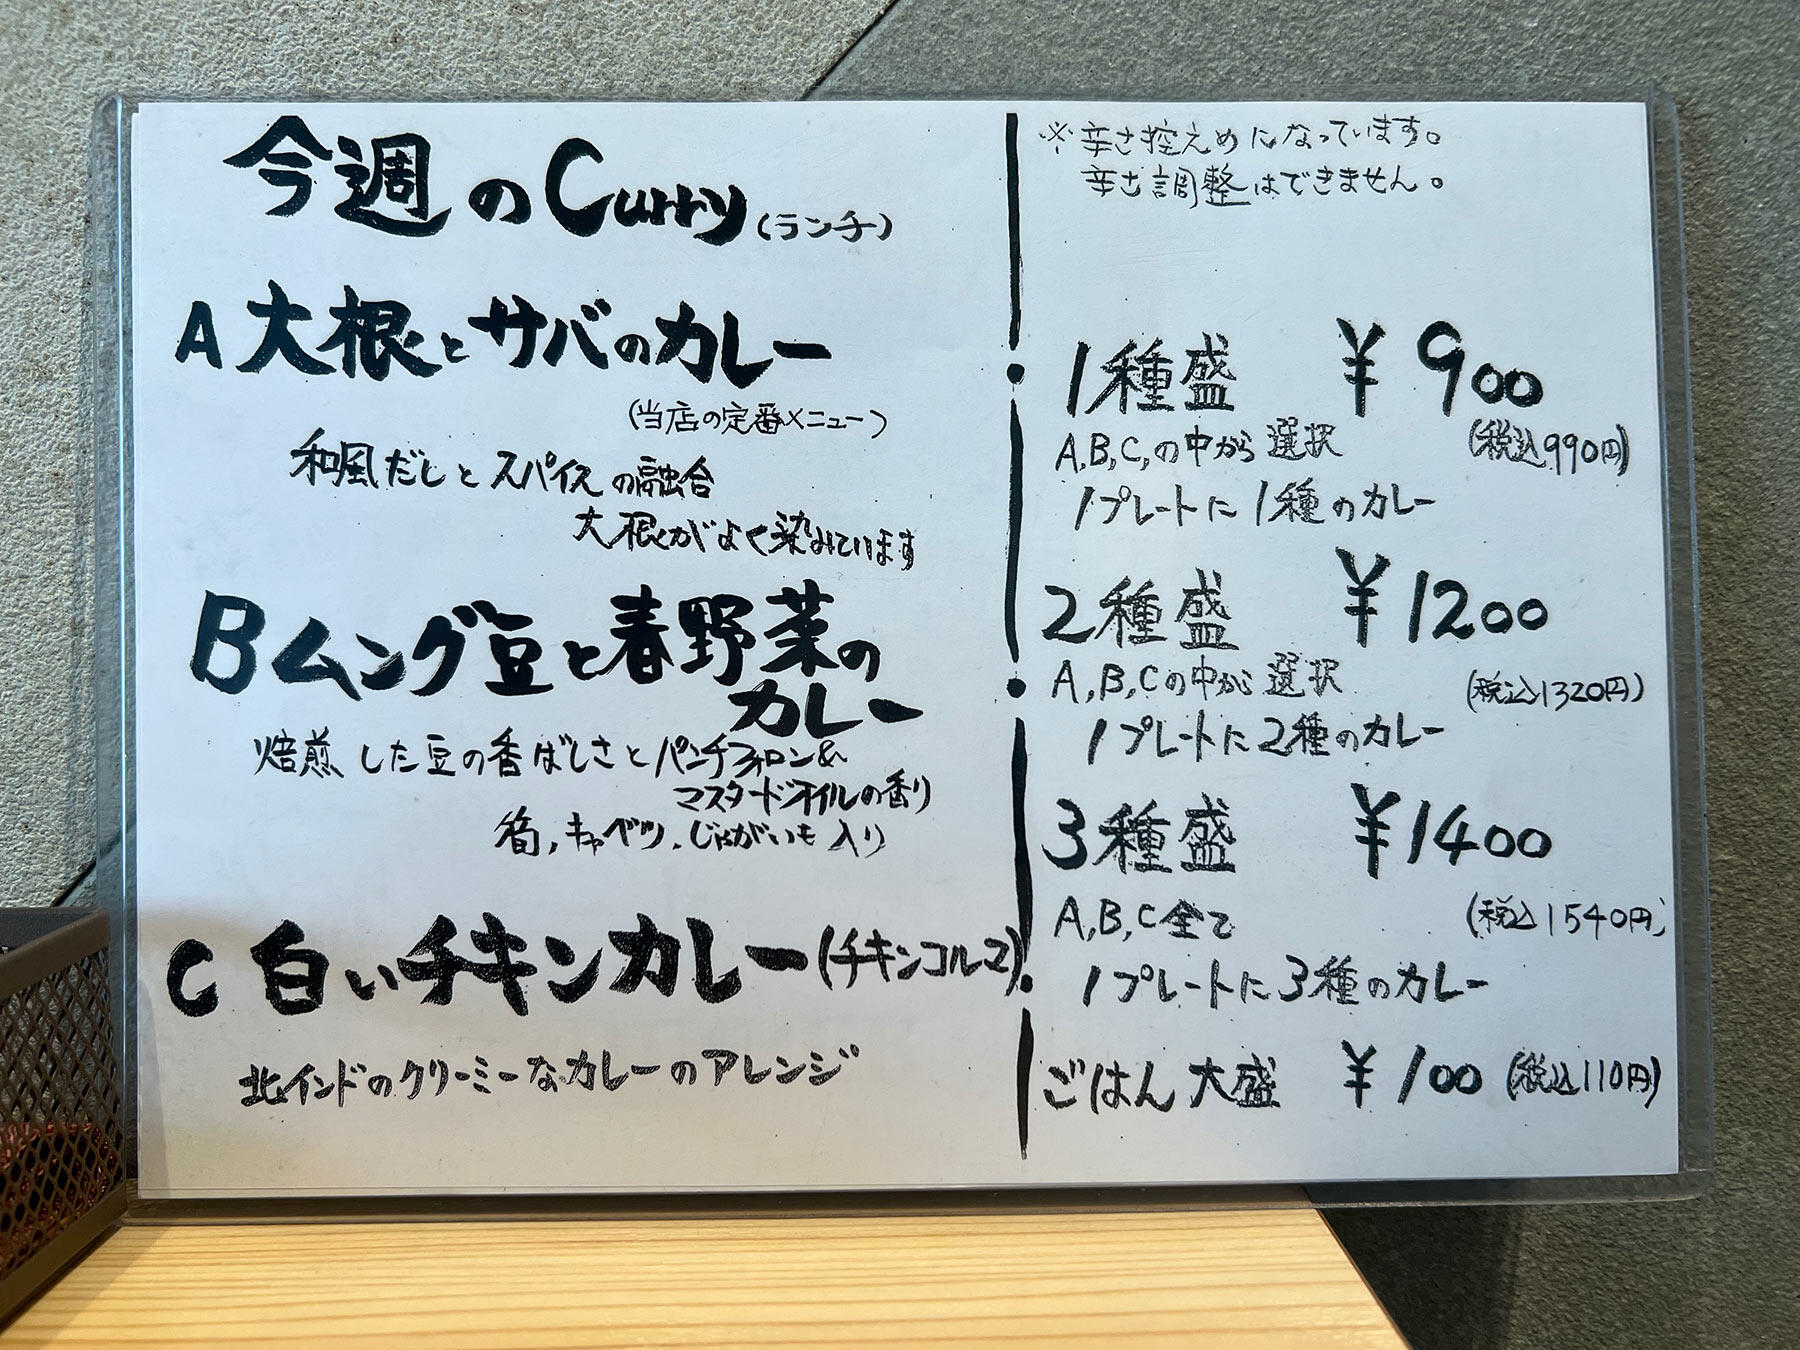 今週のCurry(ランチ)
A 大根とサバのカレー
(当店の定番メニュー)
和風だしとスパイスの融合
大根がよく染みています
B ムング豆と春野菜の
カレー
焙煎した豆の香ばしさとパンチフォロン&
マスタードオイルの香り
筍、キャベツ、じゃがいも入り
C 白いチキンカレー(チキンコルマ)
北インドのクリーミーなカレーのアレンジ
※辛さ控えめになっています。
辛さ調整はできません。
1種盛 ¥900
A,B,C,の中から選択 (税込990円)
1プレートに1種のカレー
2種盛 ¥1200
A,B,Cの中から選択 (税込1320円)
1プレートに2種のカレー
3種盛 ¥1400
A,B,C全て (税込1540円)
1プレートに3種のカレー
ごはん大盛 ¥100 (税込110円)